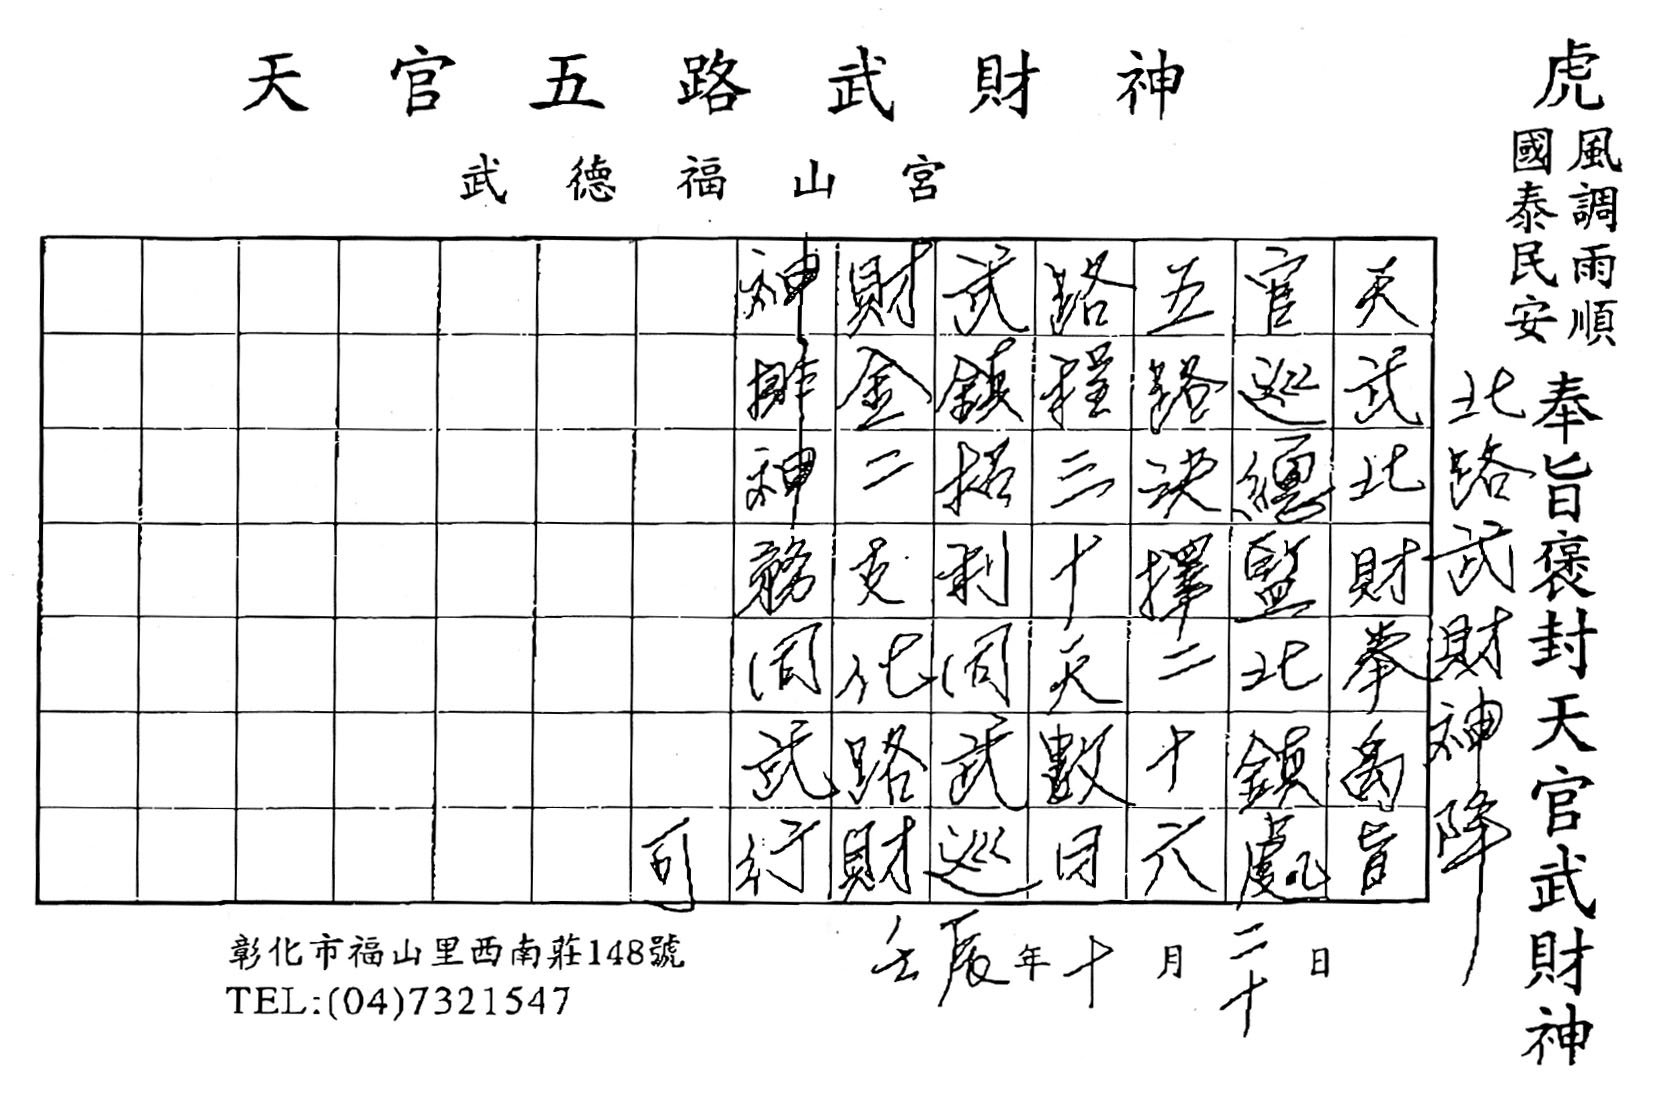 天官五路武財神
武德福山宮
虎
風調雨順
國泰民安
奉旨褒封天官武財神
北路武財神降
天武北財奉禹旨
官巡總監北鎮處
五路決擇二十六
路程三十天數目
武鎮招利同武巡
財金二支化路財
神神務同武行
可
壬辰年十月二十日
彰化市福山里西南莊148號
TEL:(04)7321547